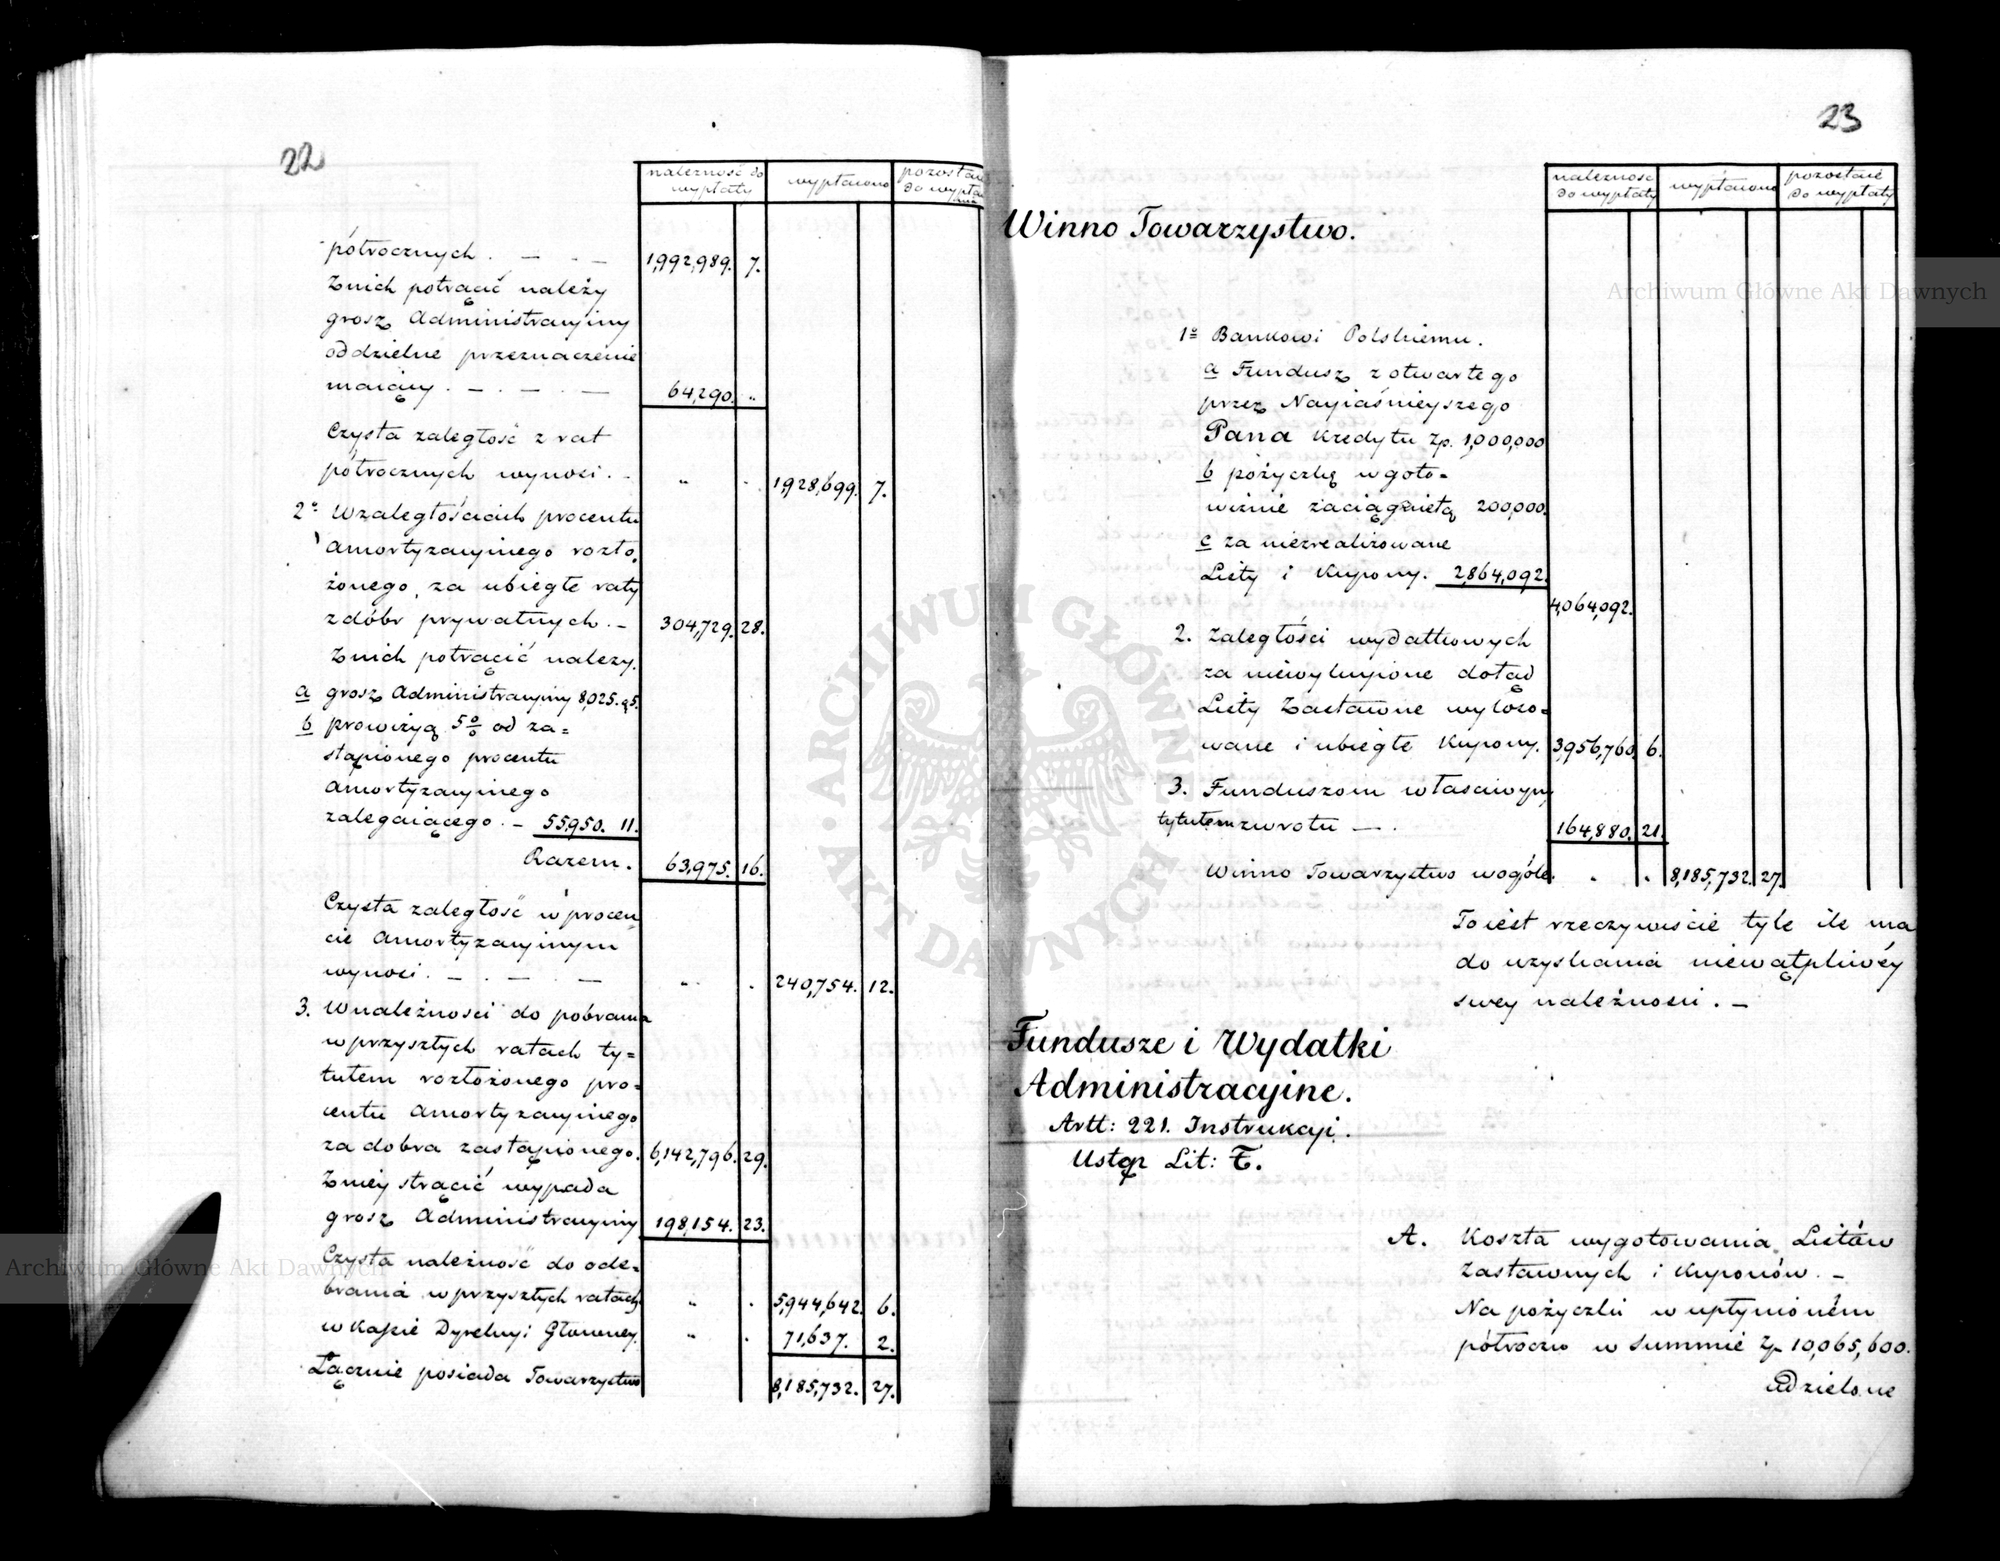 22
należność do wypłaty
wypłacono
pozostaie do wypła-
półrocznych . — . — 1,992,989. 7.
Znich potrącić należy
grosz Administracyiny
oddzielne przeznaczenie
maiący . — . — . — 64,290. "
Czysta zaległość z rat
półrocznych wynosi . - " . 1,928,699. 7.
2° W zaległościach procentu
Amortyzacyinego rozło-
żonego, za ubiegłe raty
z dóbr prywatnych . — 304,729. 28.
Znich potrącić należy.
a grosz Administracyiny 8,025. 5.
b prowizyą 5% od za=
stąpionego procentu
Amortyzacyinego
zalegaiącego . — 55,950. 11.
Razem. 63,975. 16.
Czysta zaległość w procen
cie Amortyzacyinym
wynosi . — . — . — " . 240,754. 12.
3. W należności do pobrania
w przyszłych ratach ty=
tułem rozłożonego pro-
centu Amortyzacyinego
za dobra zastąpionego. 6,142,796. 29.
Zniey strącić wypada
grosz Administracyiny 198,154. 23.
Czysta należność do ode-
brania w przyszłych ratach " . 5,944,642. 6.
w Kassie Dyrekcyi Głowney. " . 71,637. 2.
Łącznie posiada Towarzystwo 8,185,732. 27.
23
należność do wypłaty
wypłacono
pozostaie do wypłaty
Winno Towarzystwo.
1° Bankowi Polskiemu.
a Fundusz z otwartego
przez Nayiaśnieyszego
Pana kredytu Zp. 1,000,000
b pożyczkę w goto-
wiźnie zaciągniętą 200,000.
c za niezrealizowane
Listy i Kupony. 2,864,092.
4,064,092.
2. Zaległości wydatkowych
za niewykupione dotąd
Listy Zastawne wyloso-
wane i ubiegłe Kupony. 3,956,760. 6.
3. Funduszom własciwym
tytułem zwrotu — . 164,880. 21.
Winno Towarzystwo wogóle. . . 8,185,732. 27.
To iest rzeczywiście tyle ile ma
do uzyskania niewątpliwéy
swey należności . —
Fundusze i Wydatki
Administracyjne.
Artt: 221. Instrukcyi.
Ustęp Lit: E.
A. Koszta wygotowania Listów
Zastawnych i Kuponów. —
Na pożyczki w upłynioném
półroczu w summie Zp 10,065,600.
udzielone
Archiwum Główne Akt Dawnych
Archiwum Główne Akt Dawnych
ARCHIWUM GŁÓWNE AKT DAWNYCH